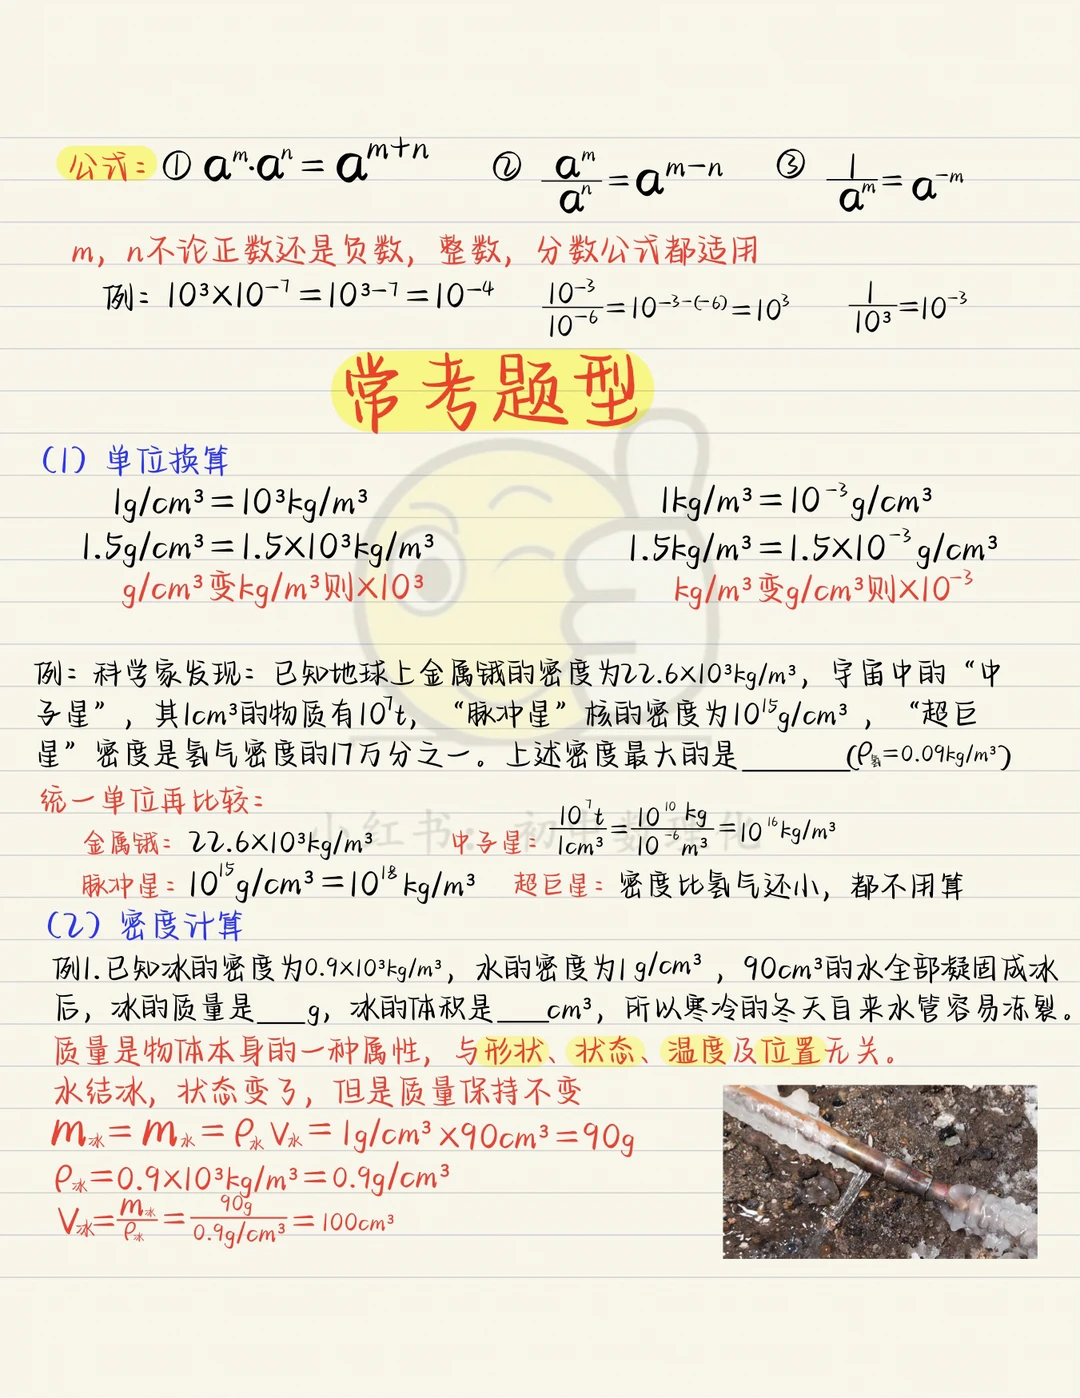 公式：① aᵐ·aⁿ = aᵐ⁺ⁿ ② aᵐ/aⁿ = aᵐ⁻ⁿ ③ 1/aᵐ = a⁻ᵐ
m，n不论正数还是负数，整数，分数公式都适用
例：10³×10⁻⁷=10³⁻⁷=10⁻⁴ 10⁻³/10⁻⁶=10⁻³⁻⁽⁻⁶⁾=10³ 1/10³=10⁻³
常考题型
（1）单位换算
1g/cm³=10³kg/m³ 1kg/m³=10⁻³g/cm³
1.5g/cm³=1.5×10³kg/m³ 1.5kg/m³=1.5×10⁻³g/cm³
g/cm³变kg/m³则×10³ kg/m³变g/cm³则×10⁻³
例：科学家发现：已知地球上金属锇的密度为22.6×10³kg/m³，宇宙中的“中
子星”，其1cm³的物质有10⁷t，“脉冲星”核的密度为10¹⁵g/cm³，“超巨
星”密度是氢气密度的17万分之一。上述密度最大的是______(ρ氢=0.09kg/m³)
统一单位再比较：
金属锇：22.6×10³kg/m³ 中子星：10⁷t/1cm³=10¹⁰kg/10⁻⁶m³=10¹⁶kg/m³
小红书：初中数理化
脉冲星：10¹⁵g/cm³=10¹⁸kg/m³ 超巨星：密度比氢气还小，都不用算
（2）密度计算
例1.已知冰的密度为0.9×10³kg/m³，水的密度为1g/cm³，90cm³的水全部凝固成冰
后，冰的质量是___g，冰的体积是___cm³，所以寒冷的冬天自来水管容易冻裂。
质量是物体本身的一种属性，与形状、状态、温度及位置无关。
水结冰，状态变了，但是质量保持不变
m冰=m水=ρ水V水=1g/cm³×90cm³=90g
ρ冰=0.9×10³kg/m³=0.9g/cm³
V冰=m冰/ρ冰=90g/0.9g/cm³=100cm³